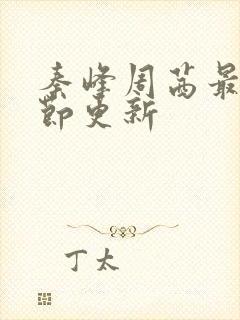 秦峰周茜最
节更新
丁太